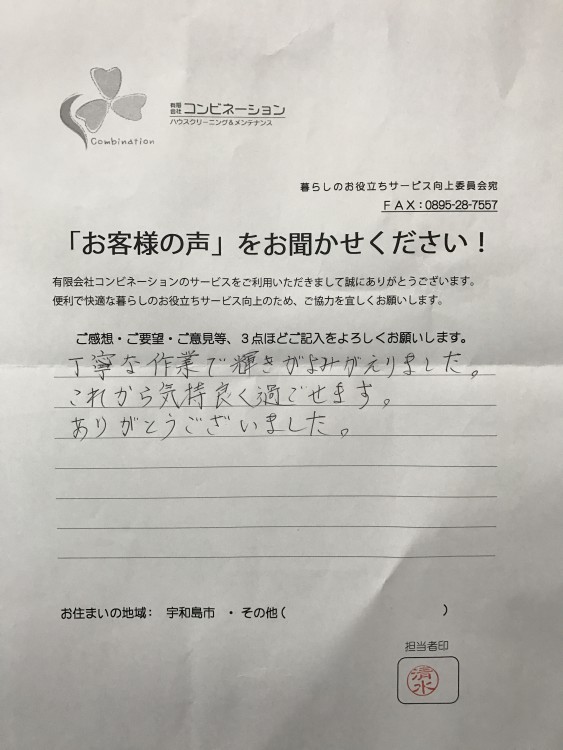 Combination
有限会社 コンビネーション
ハウスクリーニング&メンテナンス
暮らしのお役立ちサービス向上委員会宛
FAX:0895-28-7557
「お客様の声」をお聞かせください!
有限会社コンビネーションのサービスをご利用いただきまして誠にありがとうございます。
便利で快適な暮らしのお役立ちサービス向上のため、ご協力を宜しくお願いします。
ご感想・ご要望・ご意見等、3点ほどご記入をよろしくお願いします。
丁寧な作業で輝きがよみがえりました。
これから気持良く過ごせます。
ありがとうございました。
お住まいの地域: 宇和島市 ・その他( )
担当者印
清水